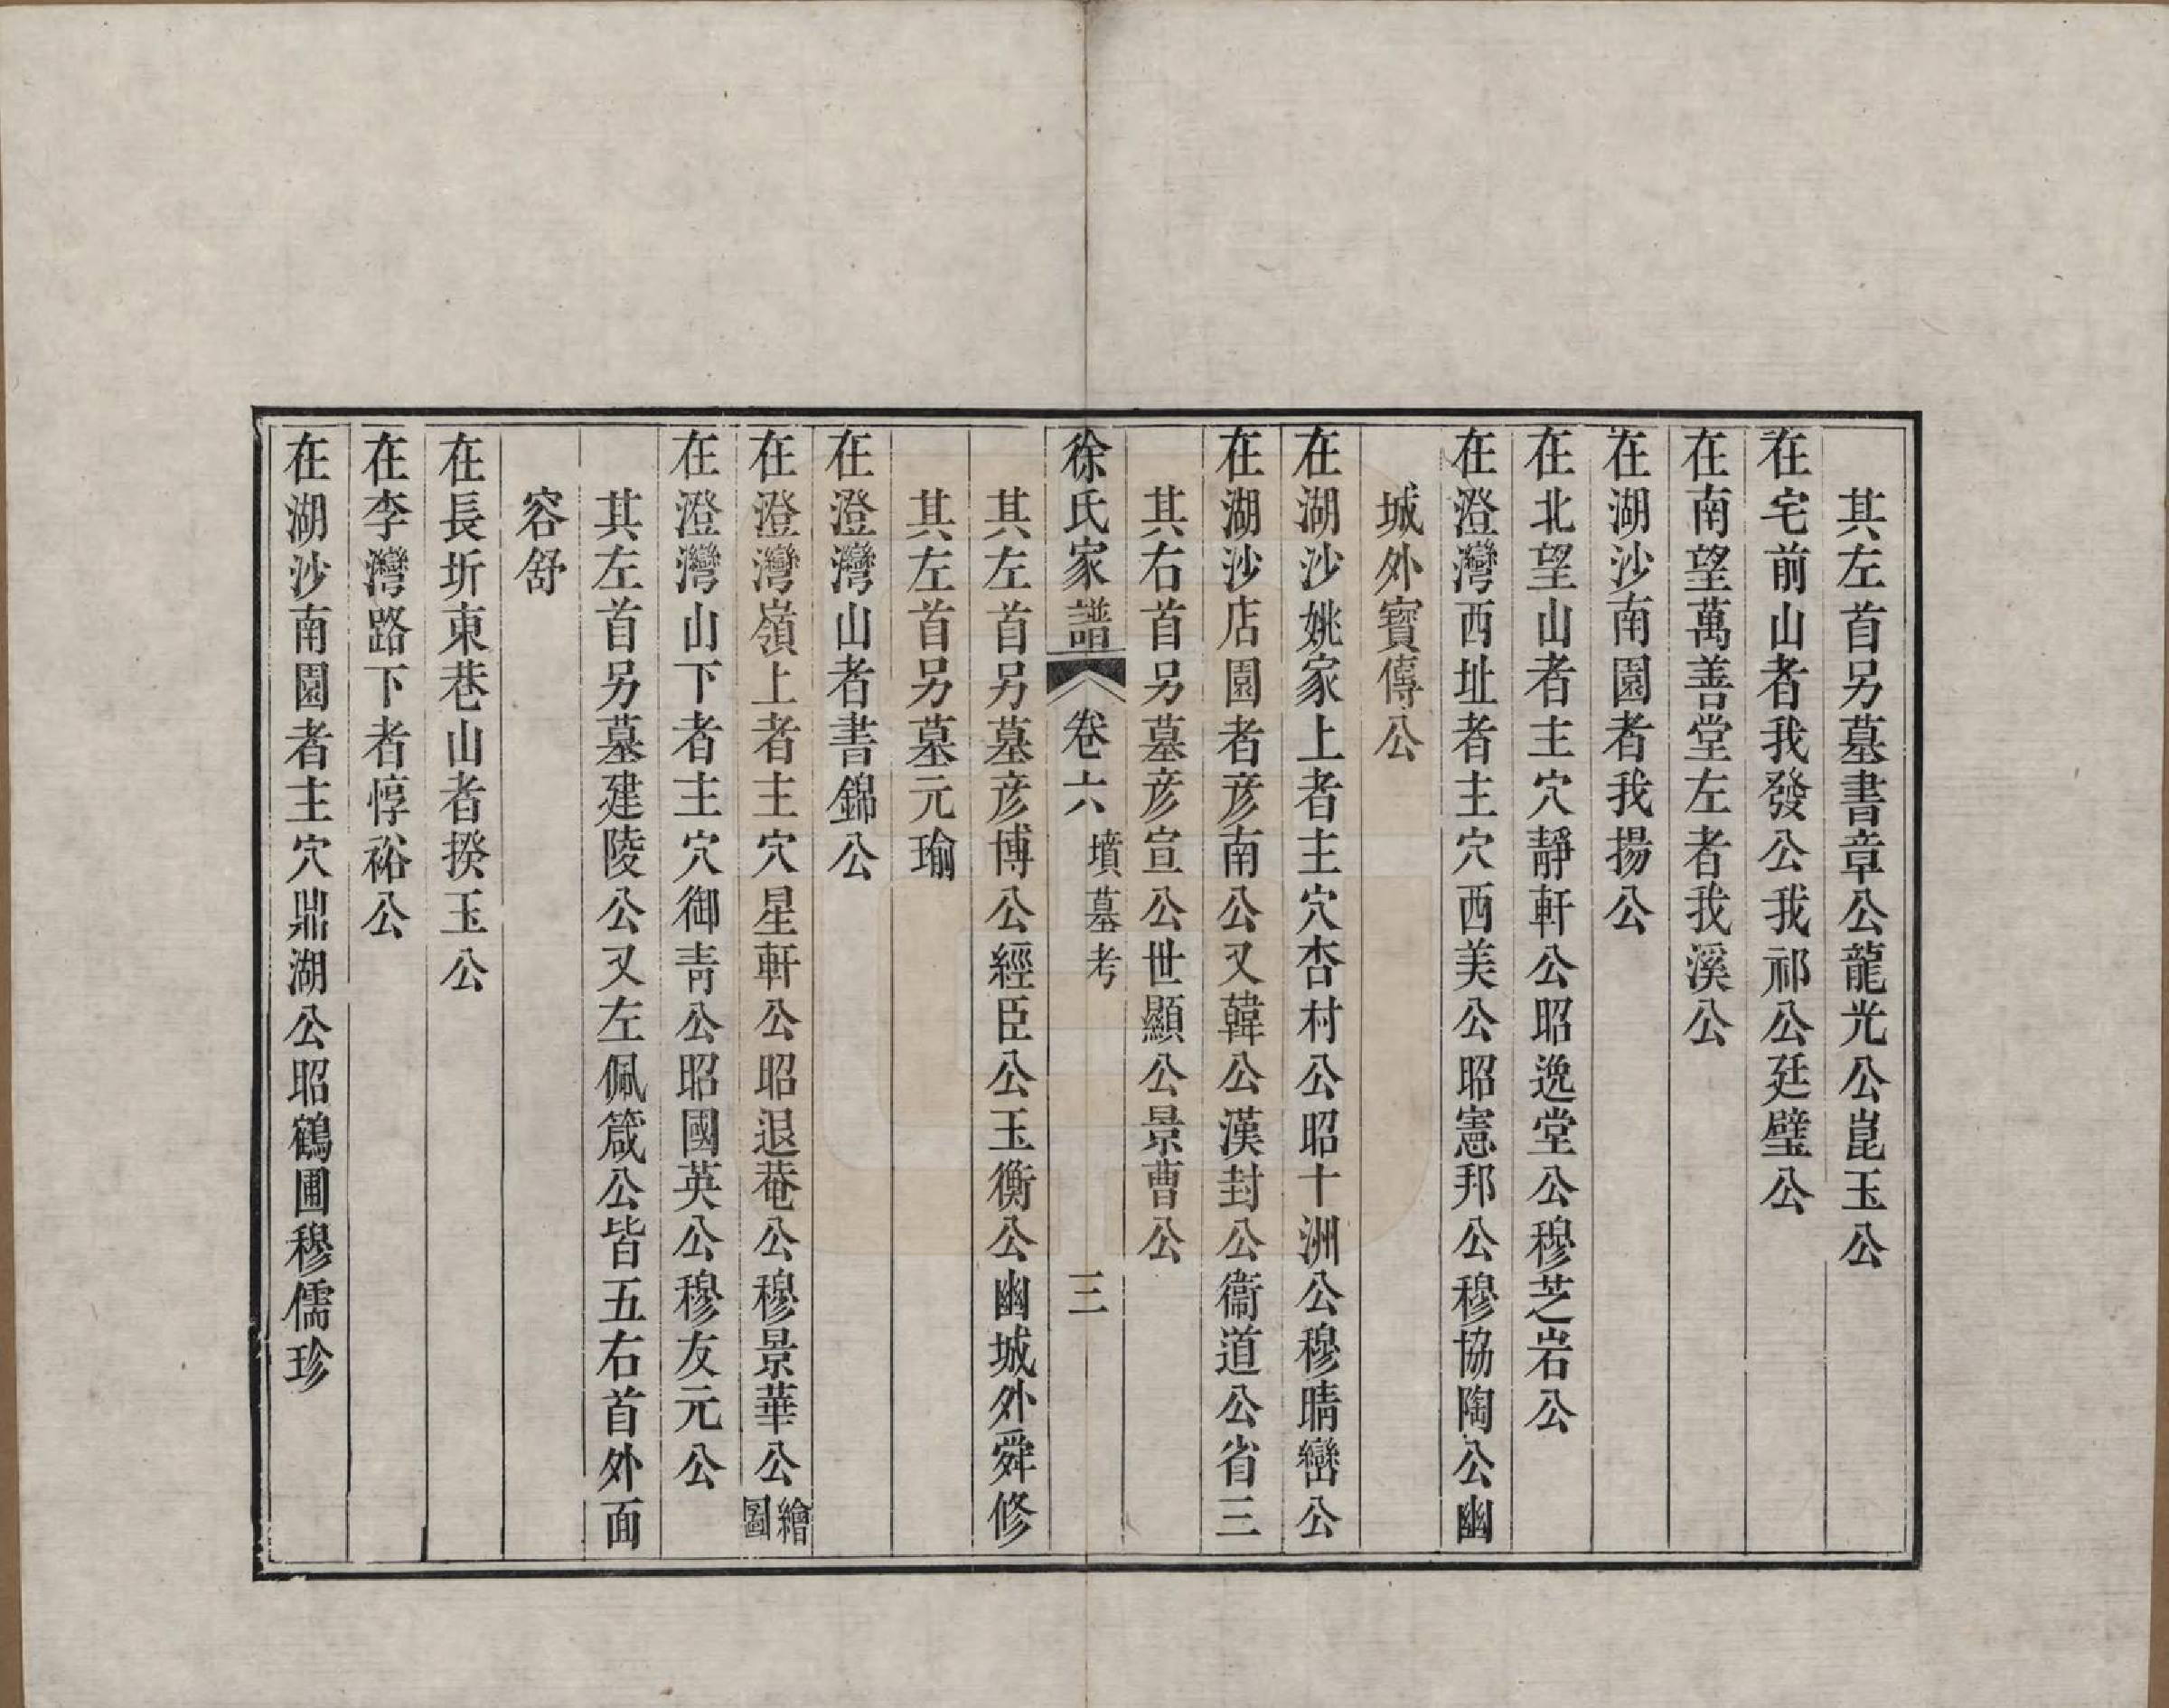 其左首另墓書章公龍光公崑玉公
在宅前山者我發公我祁公廷璧公
在南望萬善堂左者我溪公
在湖沙南園者我揚公
在北望山者主穴靜軒公昭逸堂公穆芝岩公
在澄灣西址者主穴西美公昭憲邦公穆協陶公幽
城外寶傳公
在湖沙姚家上者主穴杏村公昭十洲公穆晴巒公
在湖沙店園者彦南公又韓公漢封公衞道公省三
其右首另墓彦宣公世顯公景曹公
徐氏家譜 卷六 墳墓考 三
其左首另墓彦博公經臣公玉衡公幽城外舜修
其左首另墓元瑜
在澄灣山者書錦公
在澄灣嶺上者主穴星軒公昭退菴公穆景華公繪圖
在澄灣山下者主穴御青公昭國英公穆友元公
其左首另墓建陵公又左佩箴公皆五右首外面
容舒
在長圻東巷山者揆玉公
在李灣路下者惇裕公
在湖沙南園者主穴鼎湖公昭鶴圃穆儒珍